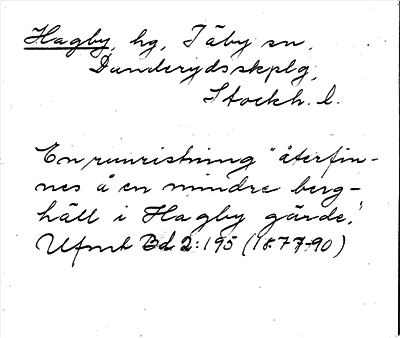 Hagby, hg, Täby sn,
Danderydsskplg,
Stockh. l.
En runristning "återfin-
nes å en mindre berg-
häll i Hagby gärde."
Ufmt Bd 2:195 (1877-90)